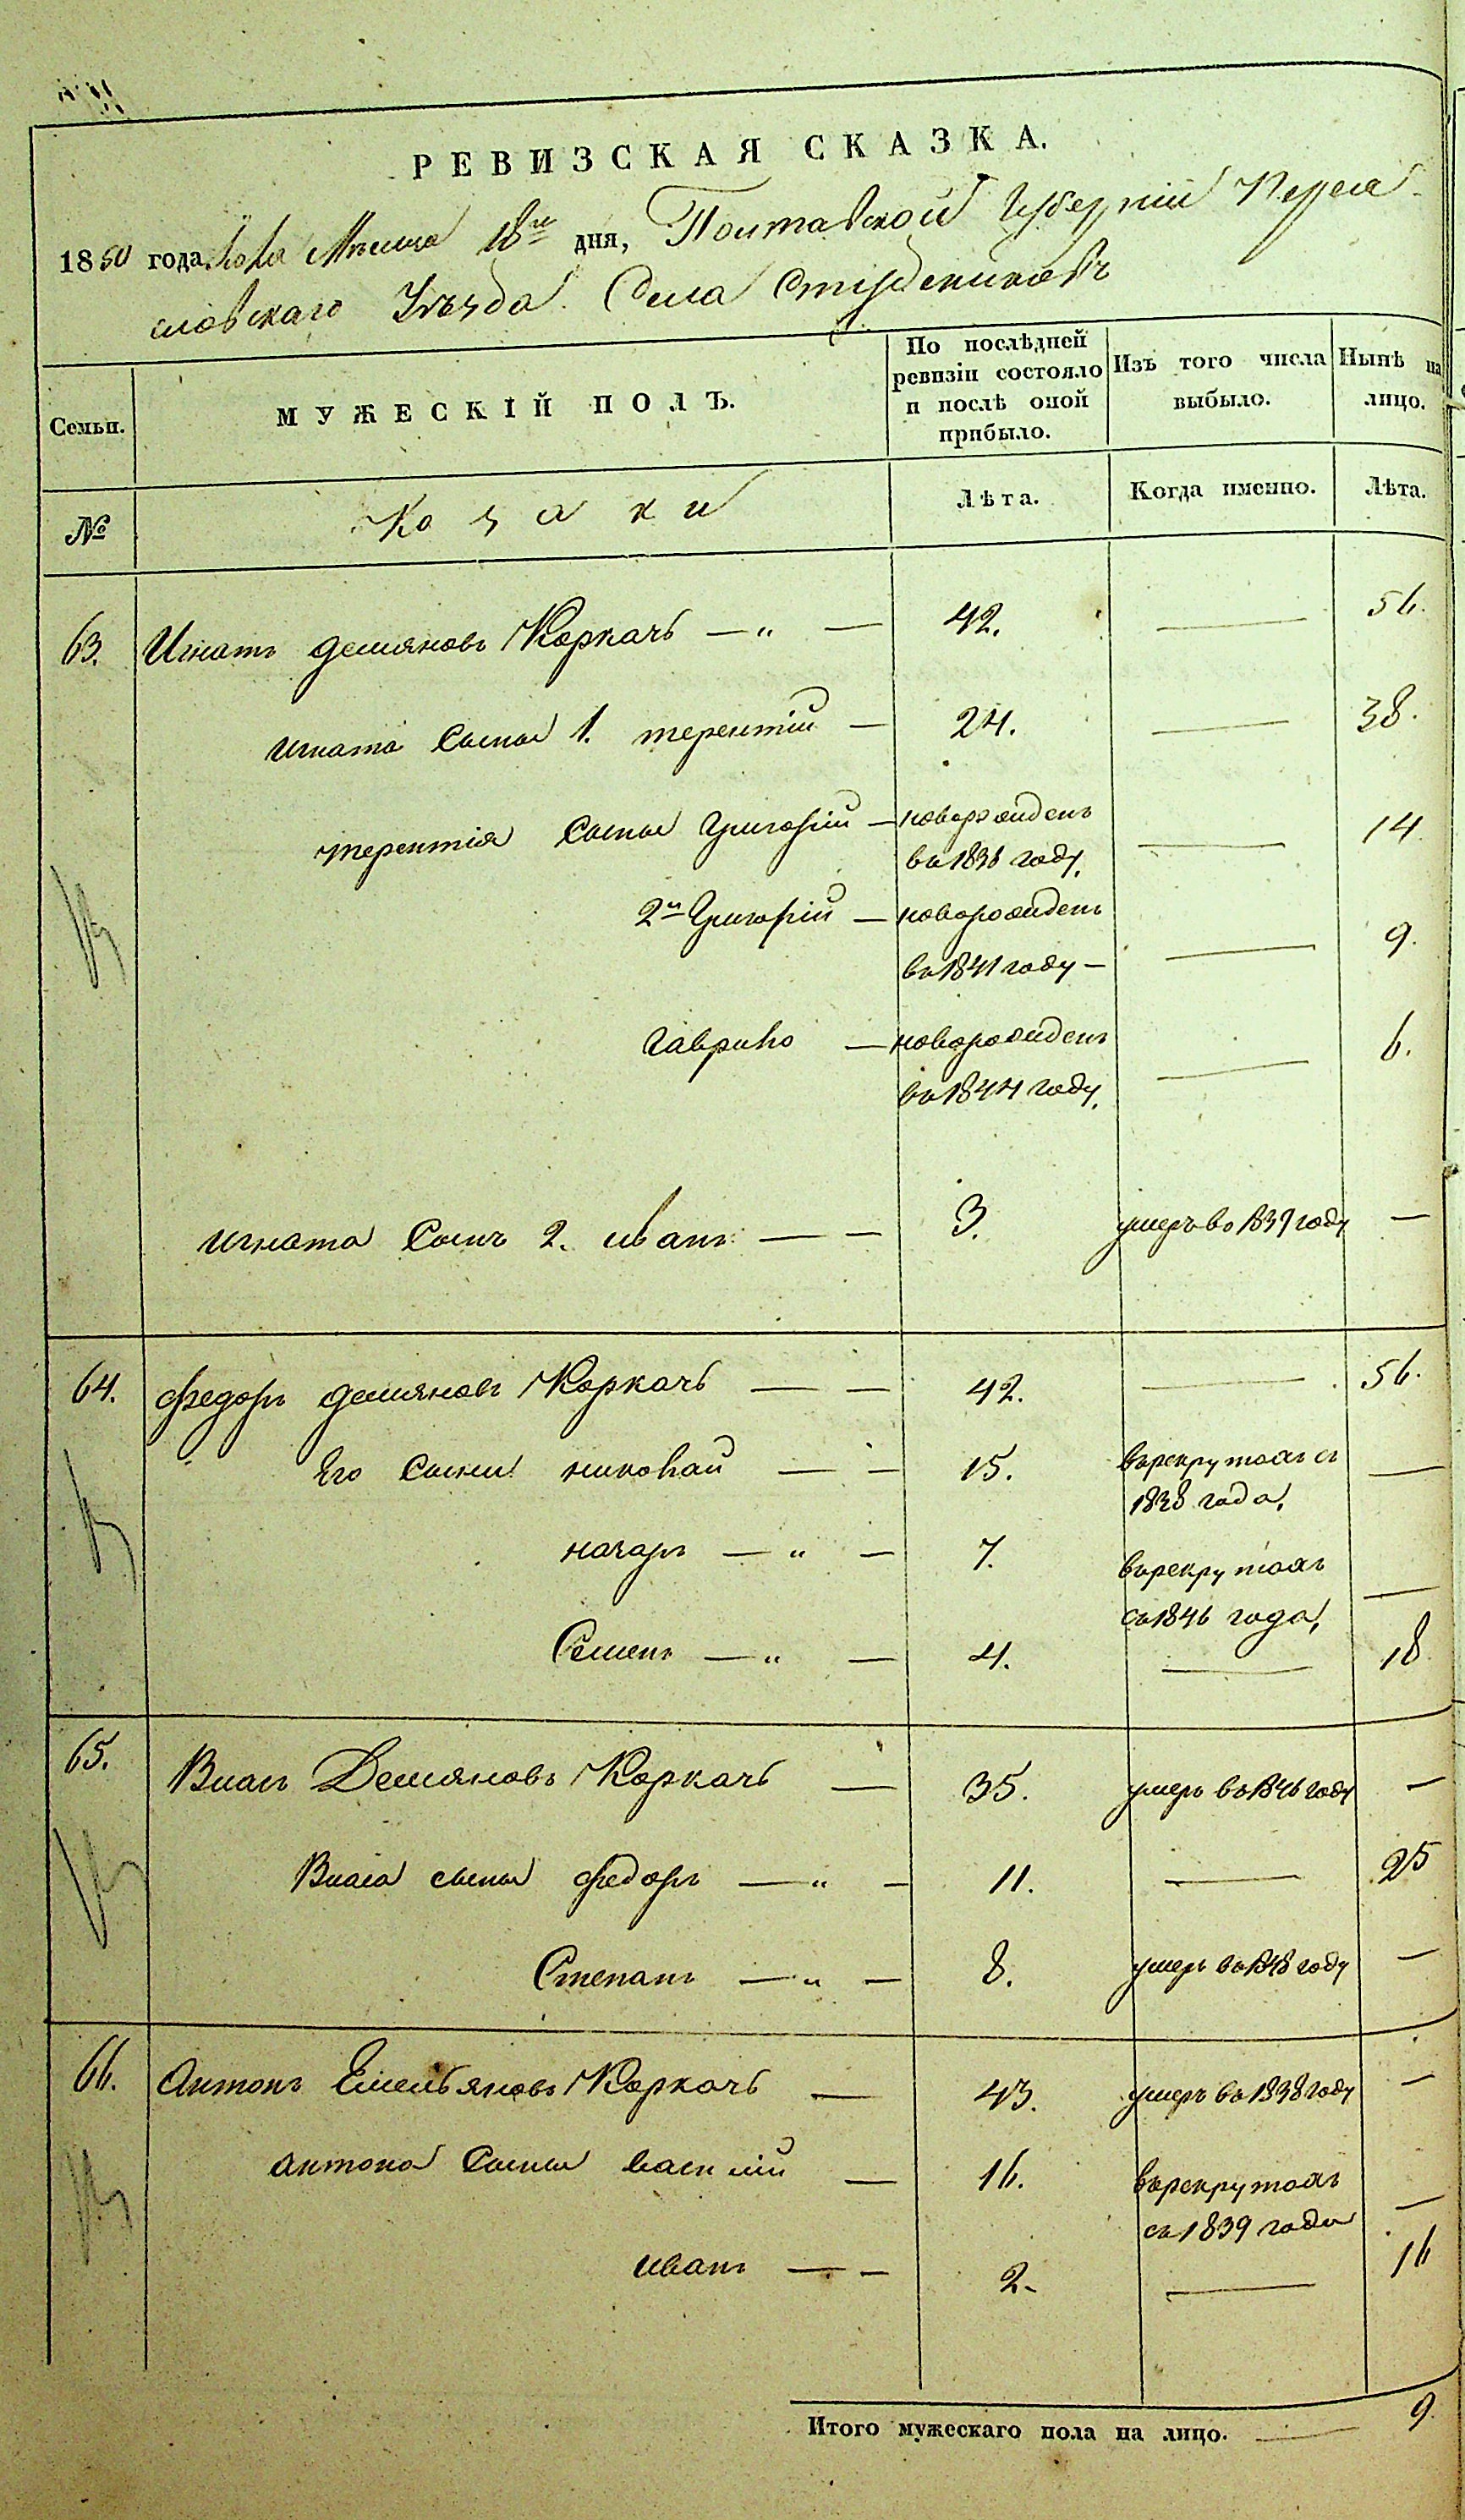 РЕВИЗСКАЯ СКАЗКА.
1850 года Мѣсяца 18го дня, Полтавской Губерніи Перея-
словскаго Уѣзда Села Студениковъ
Семьи.
МУЖЕСКІЙ ПОЛЪ.
По послѣдней ревизіи состояло и послѣ оной прибыло.
Изъ того числа выбыло.
Нынѣ на лицо.
№
Козаки
Лѣта.
Когда именно.
Лѣта.
63. Игнатъ демяновъ Коркачь — „ — 42. — 56.
игната сыны 1. терентій — 24. — 38.
терентія сыны Григорій — новорожденъ — 14
въ 1836 году.
2й Григорій — новорожденъ
въ 1841 году — — 9.
Гаврило — новорожденъ — 6.
въ 1844 году.
игната сынъ 2. иванъ — — 3. умеръ въ 1837 году —
64. федоръ демяновъ Коркачь — — 42. — 56.
Его сыни николай — — 15. въ рекрутахъ съ —
1838 года.
назаръ — „ — 7. въ рекрутахъ
съ 1846 года, —
Семенъ — „ — 4. — 18
65. Власъ Демяновъ Коркачь — 35. умеръ въ 1846 году —
Власа сыны федоръ — „ — 11. — 25
Степанъ — „ — 8. умеръ въ 1848 году —
66. Антонъ Емельяновъ Коркачь — 43. умеръ въ 1838 году —
антона сыны василій — 16. въ рекрутахъ
съ 1839 года —
иванъ — — 2. — 16
Итого мужескаго пола на лицо. — 9.